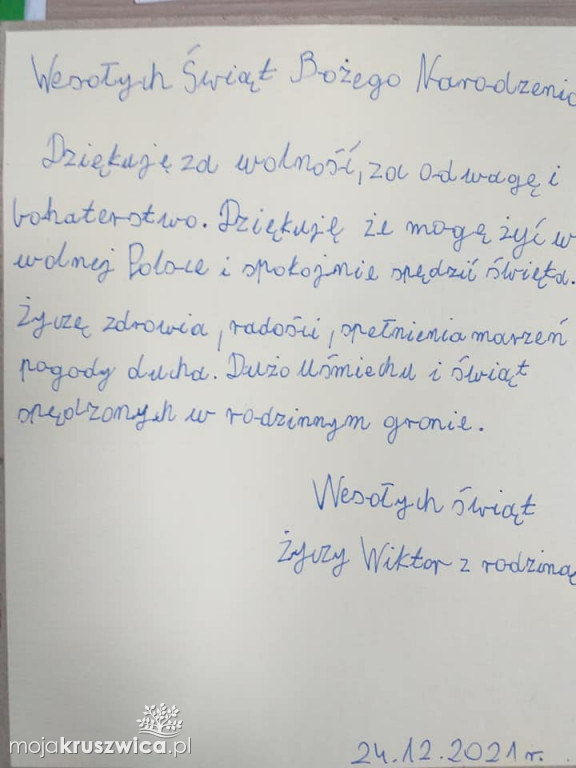 Wesołych Świąt Bożego Narodzenia
Dziękuję za wolność, za odwagę i
bohaterstwo. Dziękuję że mogę żyć w
wolnej Polsce i spokojnie spędzić święta.
Życzę zdrowia, radości, spełnienia marzeń
pogody ducha. Dużo uśmiechu i świąt
spędzonych w rodzinnym gronie.
Wesołych świąt
życzy Wiktor z rodziną
24.12.2021 r.
mojakruszwica.pl